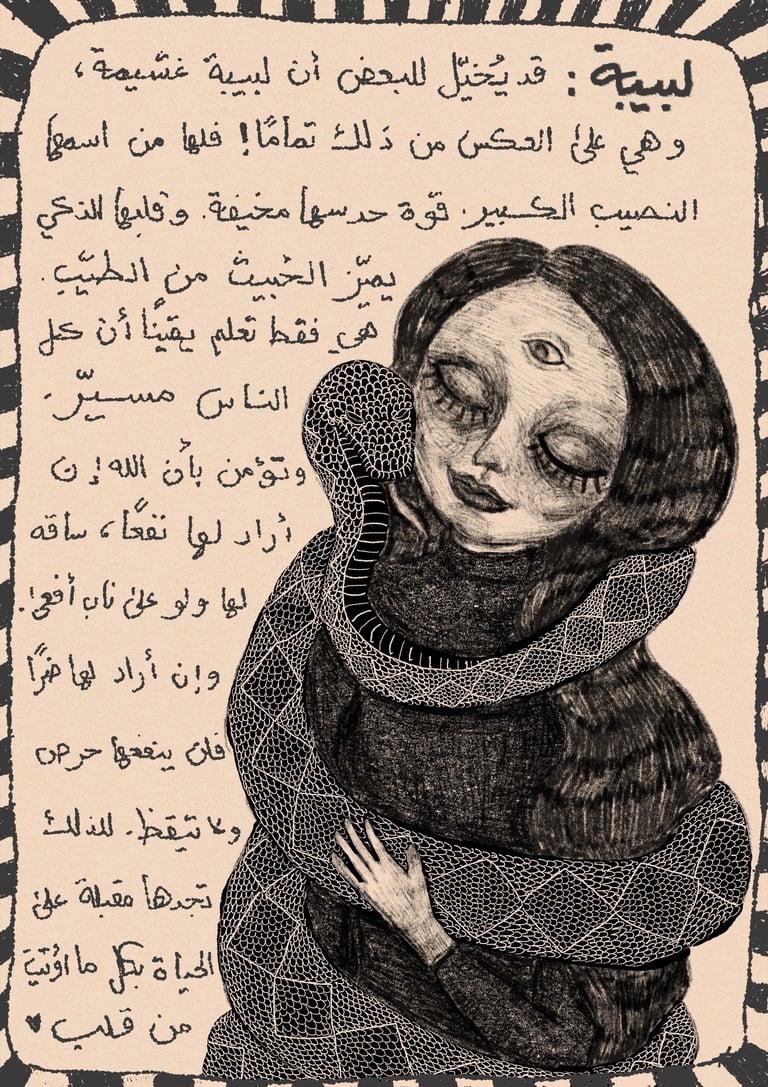 لبيبة: قد يُخيّل للبعض أن لبيبة غشيمة،
وهي على العكس من ذلك تمامًا! فلها من اسمها
النصيب الكبير. قوة حدسها مخيفة. وقلبها الذكي
يميّز الخبيث من الطيّب.
هي فقط تعلم يقينًا أن كل
الناس مسيّر.
وتؤمن بأن الله إن
أراد لها نفعًا، ساقه
لها ولو على ناب أفعى!
وإن أراد لها ضرًّا
فلن ينفعها حرص
ولا تيقظ. للذلك
تجدها مقبلة على
الحياة بكل ما اؤتيَت
من قلب ♥